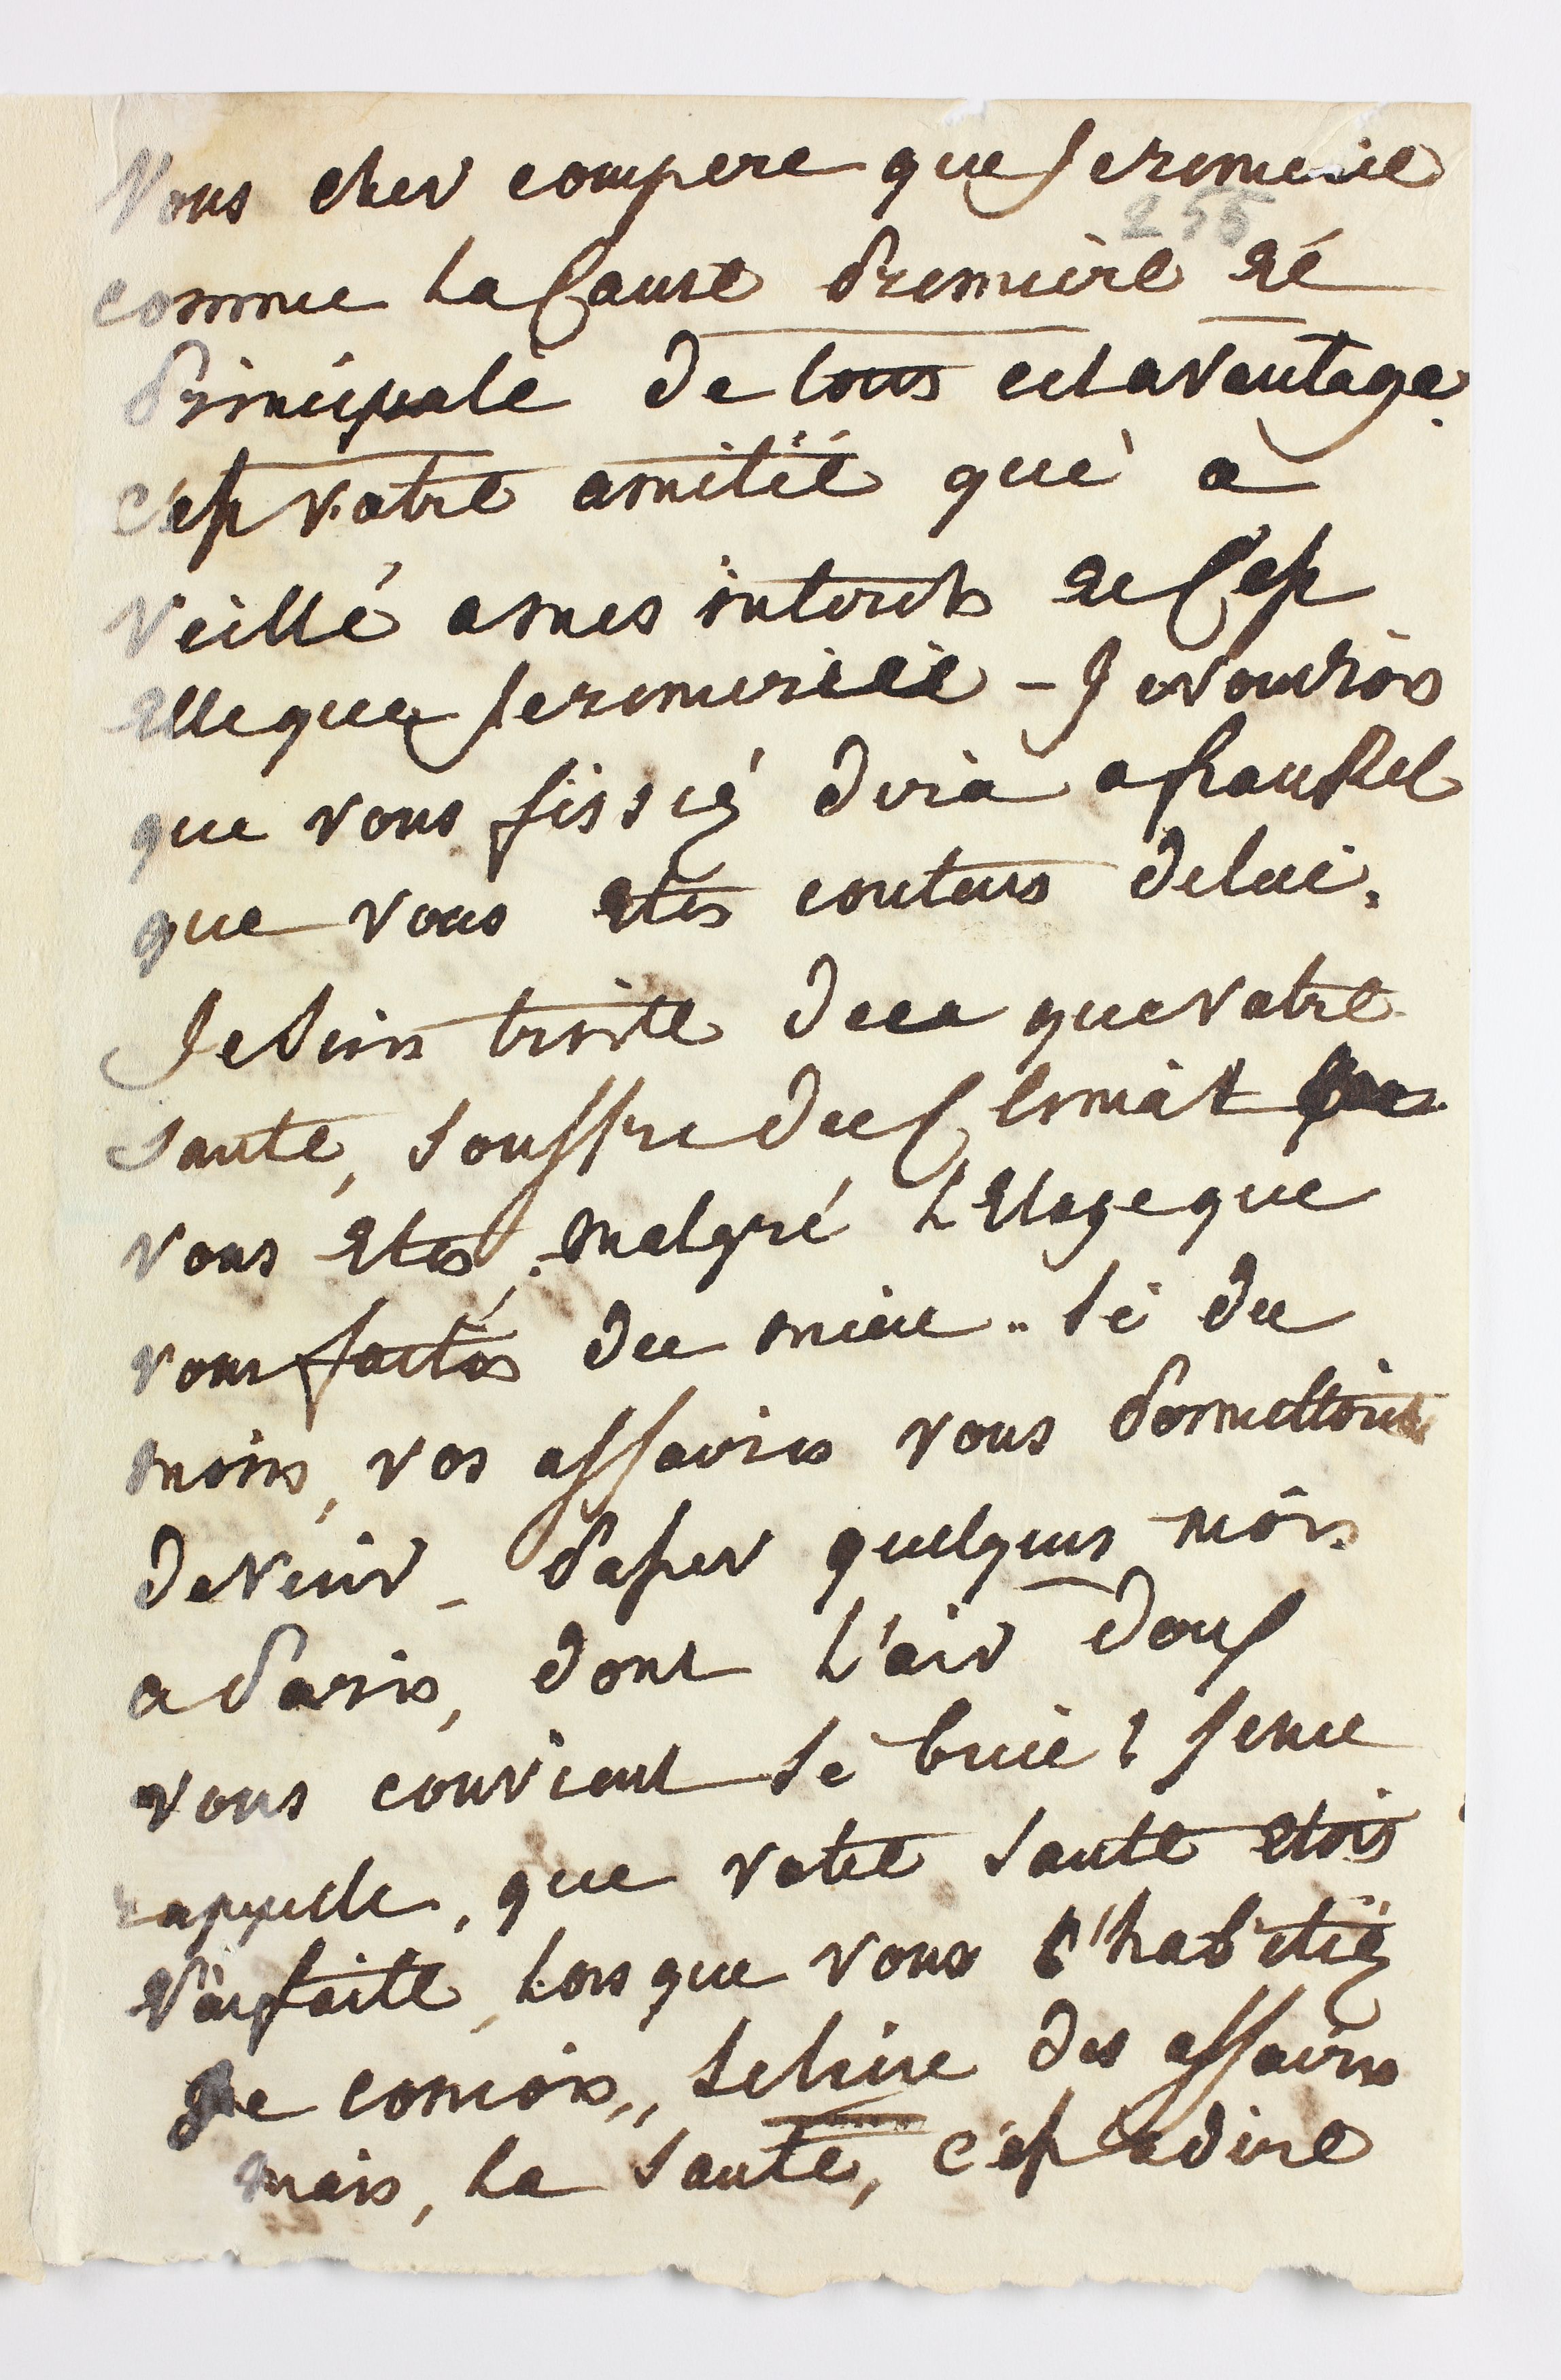 Vous cher compere que je remercie
255
comme la Cause Premiere et
Principale de tous cet avantage.
c'est votre amitié qui a
veillé a mes interets et C'est
Elle que je remercie - Je voudrois
que vous fissiez dire a
que vous etes contens de lui.
Je suis triste de ce que votre
santé, souffre du Climat
vous etes, malgré L'Eloge que
vous faites du mieu.. si du
moins, vos affaires vous Permettoient
de venir - Passer quelques mois
a Paris, dont l'air doux
vous convient si bien! je me
rappelle, que votre santé etois
Parfaite, Lorsque vous l'habitiez
Je connois,, des affaires
mais, La santé, c'est a dire